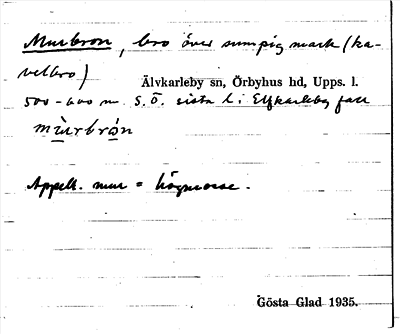 Murbron, bro över sumpig mark (ka-
velbro)
Älvkarleby sn, Örbyhus hd, Upps. l.
500-600 m S.Ö. sista l. i Elfkarleby fall
mùrbrón
Appell. mur = högmosse.
Gösta Glad 1935.